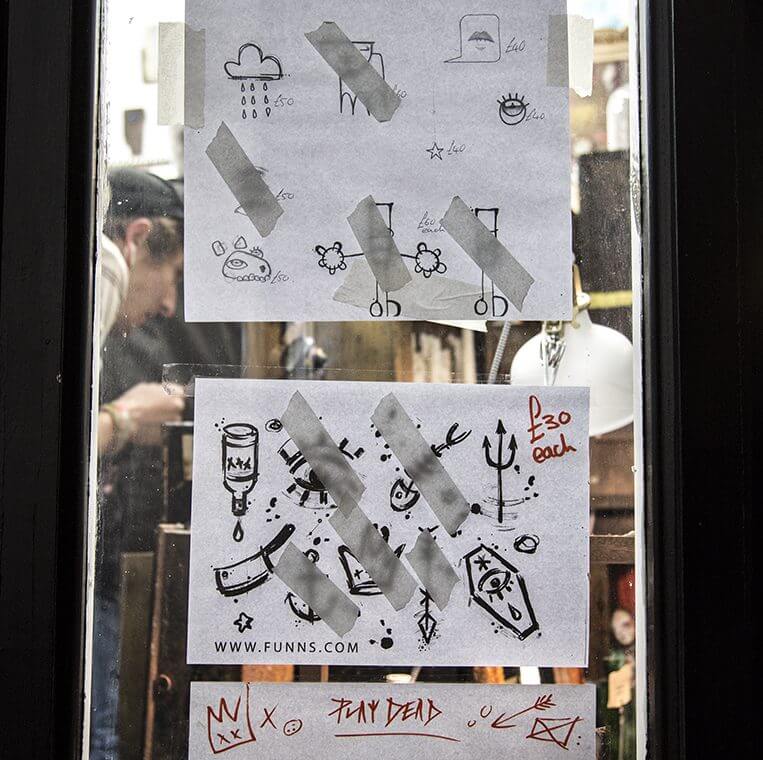 £40
£50
£40
£40
£50
£60
each
£50
£30
each
xxx
WWW.FUNNS.COM
X
PLAY DEAD
xx